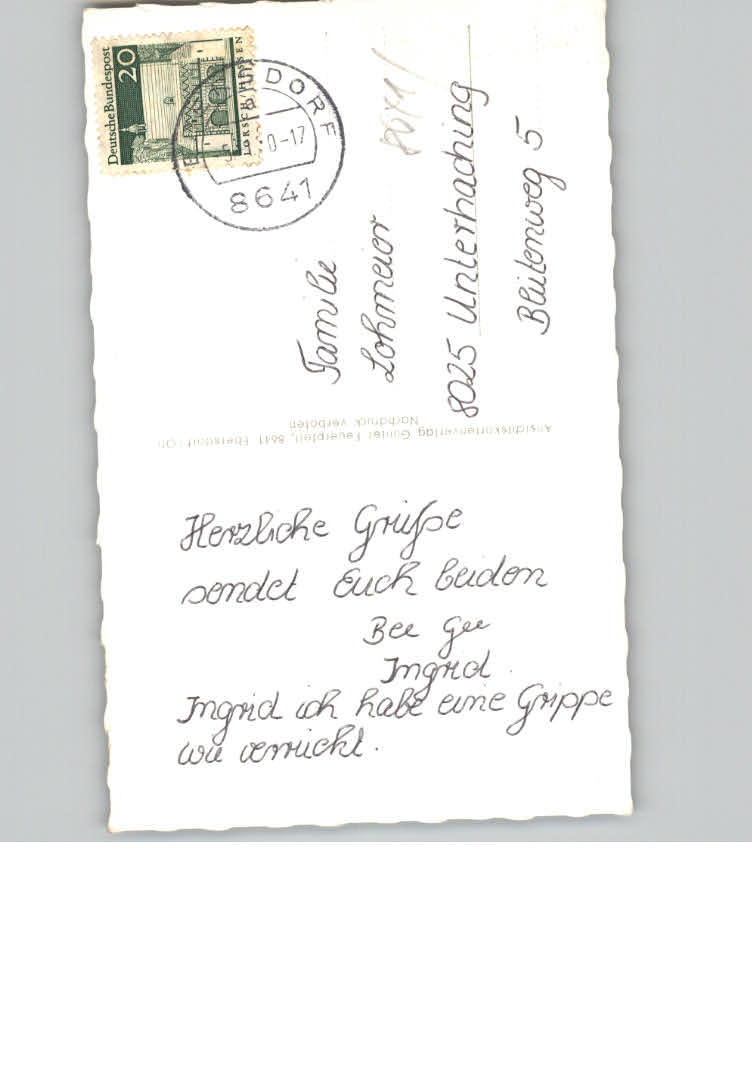 Deutsche Bundespost
20
LORSCH/HESSEN
DORF
0-17
8641
Familie
Lohmeier
8025 Unterhaching
Blütenweg 5
Ansichtskartenverlag Günter Feuerpfeil, 8641 Ebersdorf
Nachdruck verboten
Herzliche Grüße
sendet Euch beiden
Bee Gee
Ingrid.
Ingrid ich habe eine Grippe
wie verrückt.